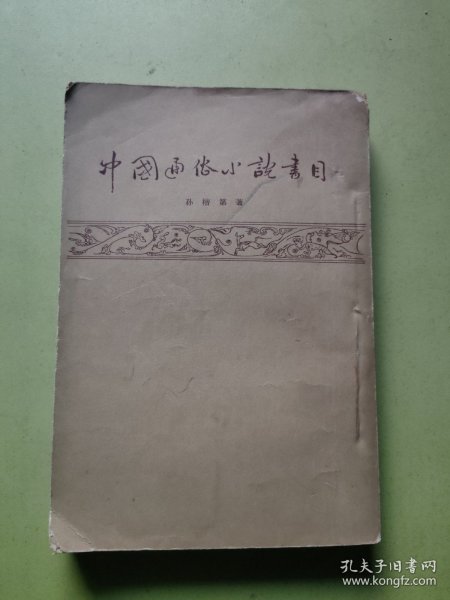 中國通俗小說書目
孙楷第著
孔夫子旧书网
www.kongfz.com